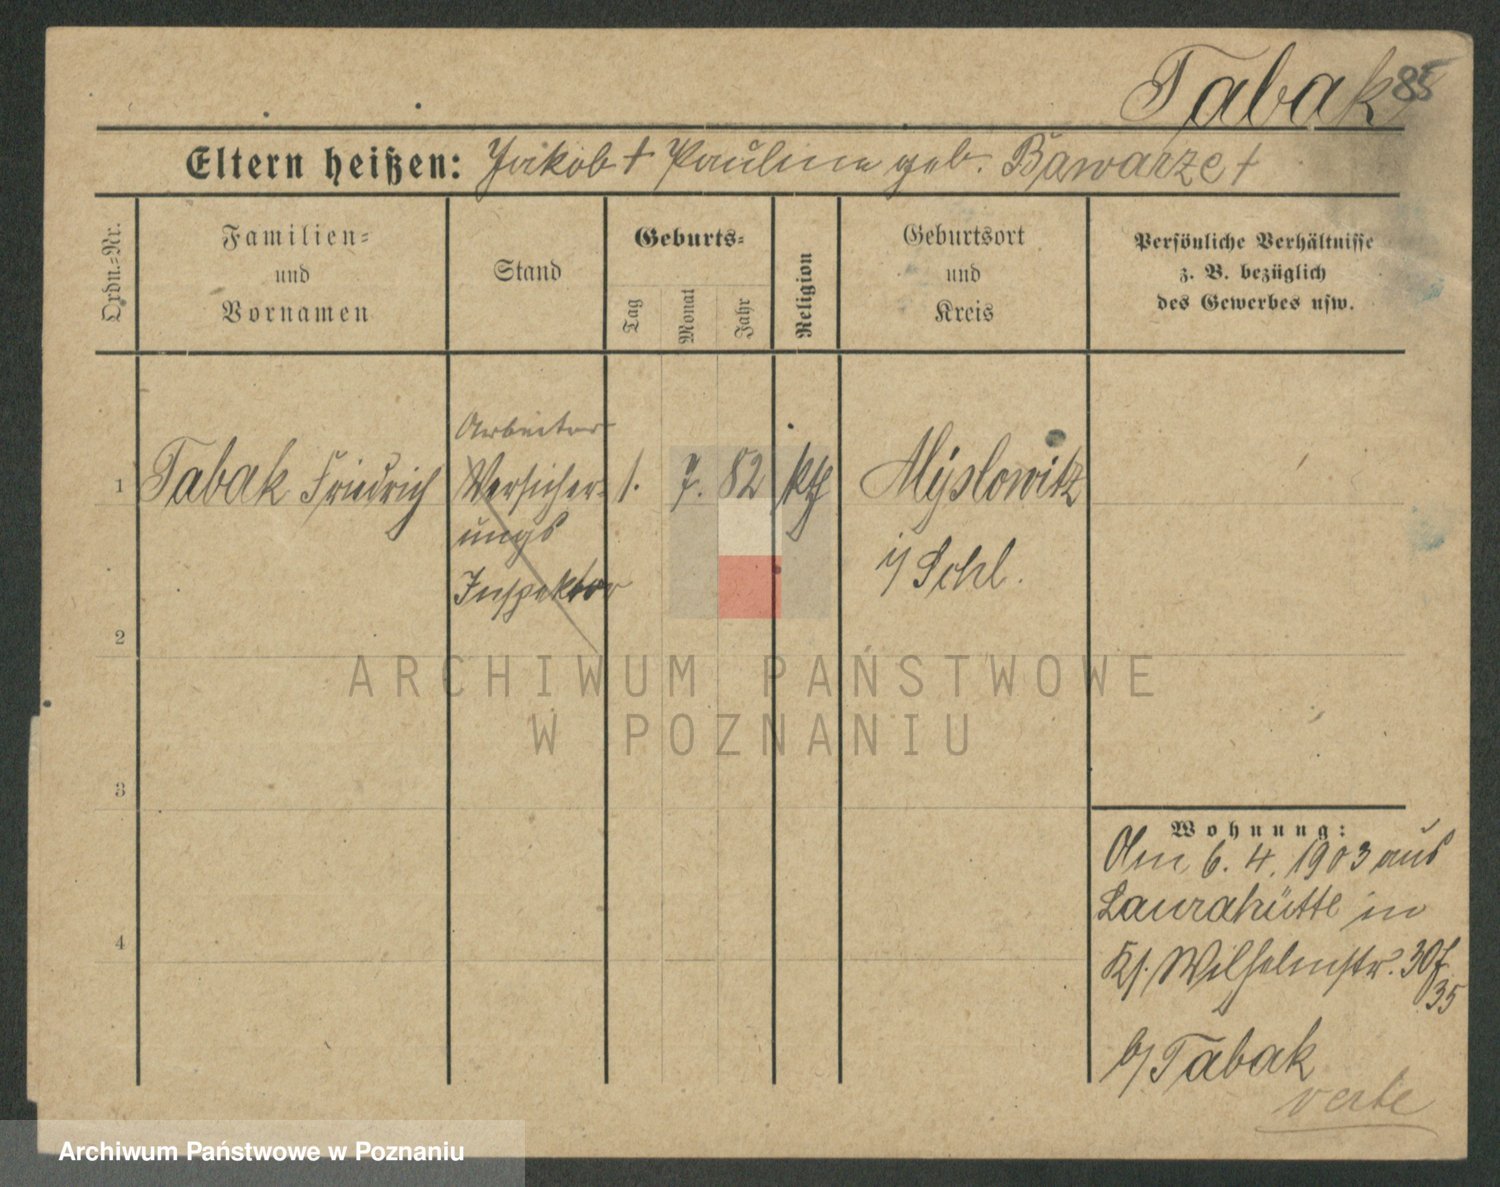 Tabak 85
Eltern heißen: Jakob † Pauline geb. Bawarze †
Ordn.-Nr.
Familien- und Vornamen
Stand
Geburts-
Tag
Monat
Jahr
Religion
Geburtsort und Kreis
Persönliche Verhältnisse
z. B. bezüglich
des Gewerbes usw.
Arbeiter
1 Tabak Friedrich Versicher- 1. 7. 82 kth Myslowitz
ungs
Inspektor
i/ Schl.
2
3
4
Wohnung:
Am 6. 4. 1903 aus
Laurahütte in
Wilhelmstr. 30
35
b/ Tabak
verte
ARCHIWUM PAŃSTWOWE
W POZNANIU
Archiwum Państwowe w Poznaniu